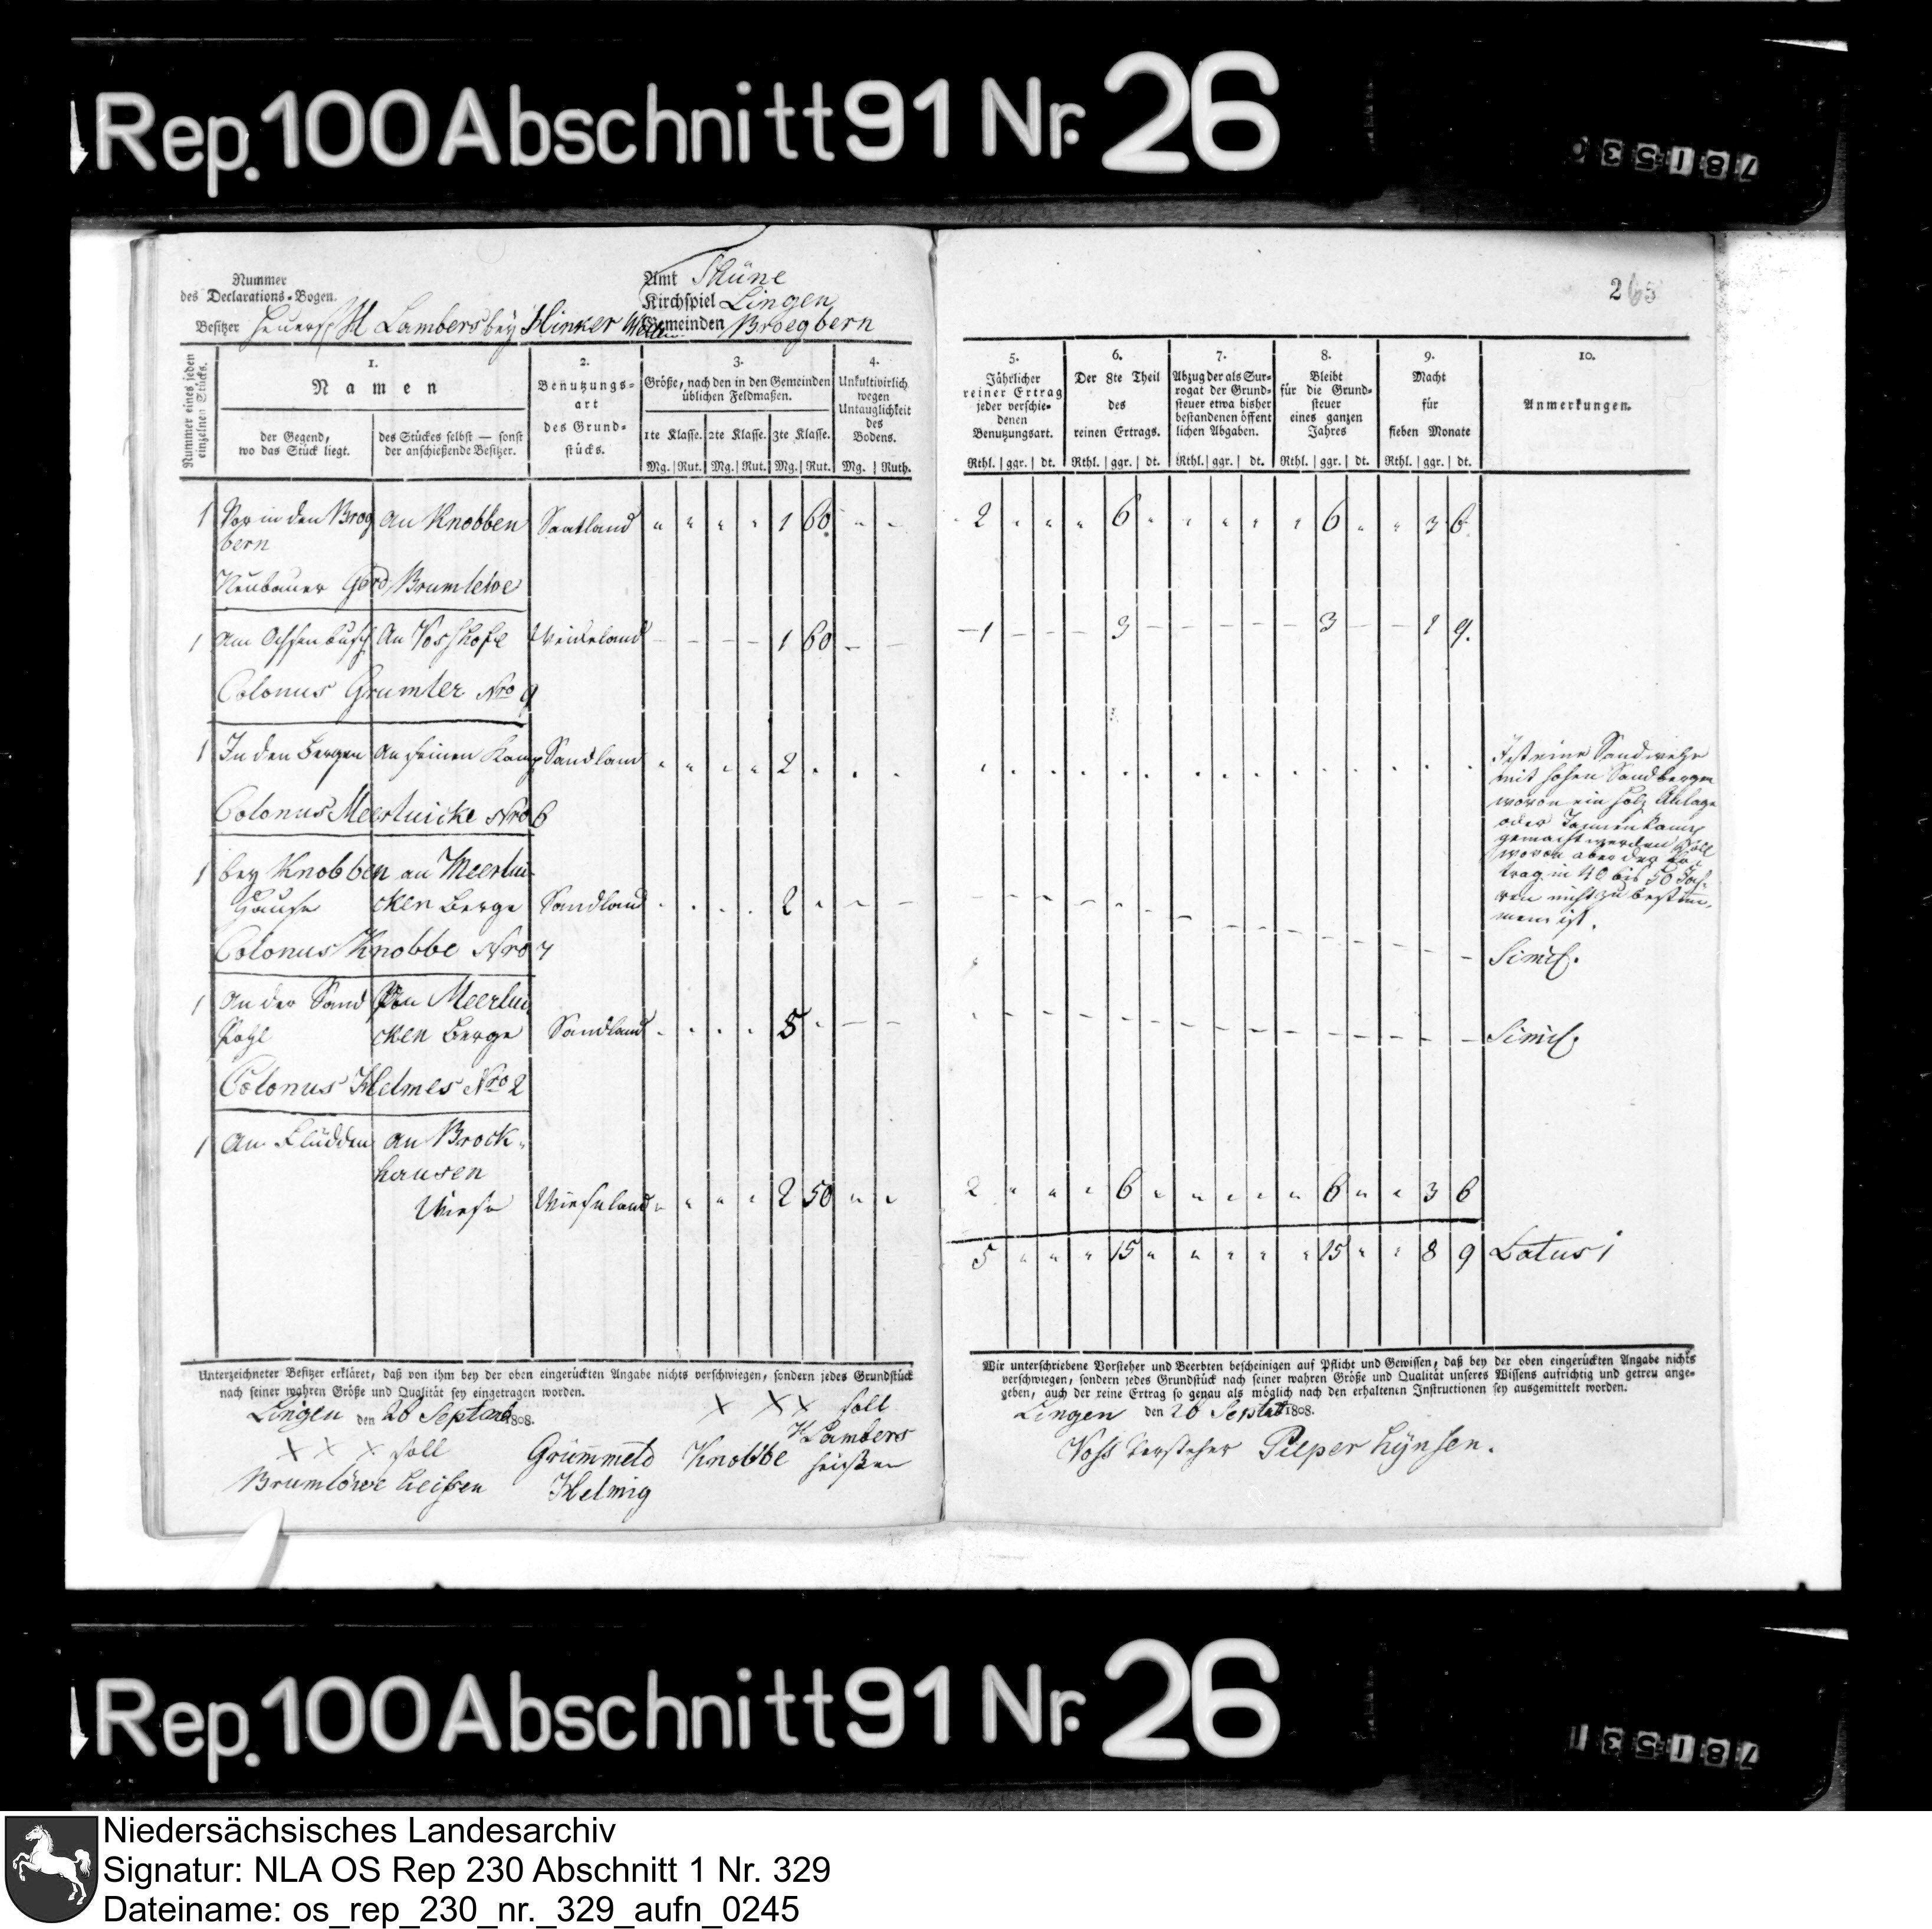 Rep. 100 Abschnitt 91 Nr. 26
781530
Nummer
des Declarations-Bogen.
Amt Thüne
Kirchspiel Lingen
Besitzer Heuerl H Lambers bey Hinker Gemeinden Broegbern
265
Nummer eines jeden einzelnen Stücks.
1.
Namen
der Gegend, wo das Stück liegt.
des Stückes selbst — sonst der anschießende Besitzer.
2.
Benutzungs-
art
des Grund-
stücks.
3.
Größe, nach den in den Gemeinden
üblichen Feldmaßen.
1te Klasse. 2te Klasse. 3te Klasse.
Mg. Rut. Mg. Rut. Mg. Rut.
4.
Unkultivirlich
wegen
Untauglichkeit
des
Bodens.
Mg. Ruth.
5.
Jährlicher
reiner Ertrag
jeder verschie-
denen
Benutzungsart.
Rthl. ggr. dt.
6.
Der 8te Theil
des
reinen Ertrags.
Rthl. ggr. dt.
7.
Abzug der als Sur-
rogat der Grund-
steuer etwa bisher
bestandenen öffent
lichen Abgaben.
Rthl. ggr. dt.
8.
Bleibt
für die Grund-
steuer
eines ganzen
Jahres
Rthl. ggr. dt.
9.
Macht
für
sieben Monate
Rthl. ggr. dt.
10.
Anmerkungen.
1 Vor in den Brog an Knobben Saatland 1 60 2 6 6 3 6
bern
Neubauer Gerd Brumlewe
1 Am Ochsenbusch An Vosshofe Weideland 1 60 1 3 3 1 9.
Colonus Grumler Nro 9
1 In den Bergen An seinen Kamp Sandland 2
Ist eine Sandwehe
mit hohen Sandbergen
wovon ein Holz Anlage
oder Tannenkamp
gemacht werden soll
wovon aber der Er
trag in 40 bis 50 Jah-
ren nicht zu bestim-
men ist.
Colonus Meerluicke Nro 6
1 bey Knobben an Meerlui-
Hause cken Berge Sandland 2 Simil.
Colonus Knobbe Nro 7
1 An der Sand Von Meerlui
Pohl cken Berge Sandland 5 Simil.
Colonus Helmes Nro 2
1 An Flüdden an Brock-
hausen
Wiese Wiesenland 2 50 2 6 6 3 6
5 15 15 8 9 Latus
Unterzeichneter Besitzer erkläret, daß von ihm bey der oben eingerückten Angabe nichts verschwiegen, sondern jedes Grundstück
nach seiner wahren Größe und Qualität sey eingetragen worden.
Lingen den 26 Septemb 1808.
X X X soll
H Lambers
heißen
X X X soll
Brumlöwe heissen
Grümmeld
Helmig
Knobbe
Wir unterschriebene Vorsteher und Beerbten bescheinigen auf Pflicht und Gewissen, daß bey der oben eingerückten Angabe nichts
verschwiegen, sondern jedes Grundstück nach seiner wahren Größe und Qualität unseres Wissens aufrichtig und getreu ange-
geben, auch der reine Ertrag so genau als möglich nach den erhaltenen Instructionen sey ausgemittelt worden.
Lingen den 26 Septbr 1808.
Voss Vorsteher Pieper Lynsen.
Rep. 100 Abschnitt 91 Nr. 26
781531
Niedersächsisches Landesarchiv
Signatur: NLA OS Rep 230 Abschnitt 1 Nr. 329
Dateiname: os_rep_230_nr._329_aufn_0245